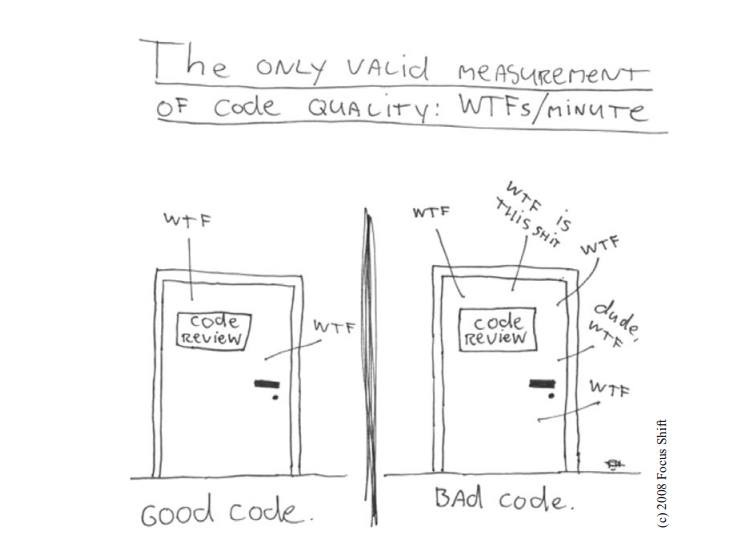 The ONLY VALID MEASUREMENT
OF Code QUALITY: WTFs/MINUTE
WTF
code
REVIEW
WTF
GOOD code.
WTF
WTF is
THIS SHIT
WTF
dude,
WTF
code
REVIEW
WTF
BAd code.
(c) 2008 Focus Shift